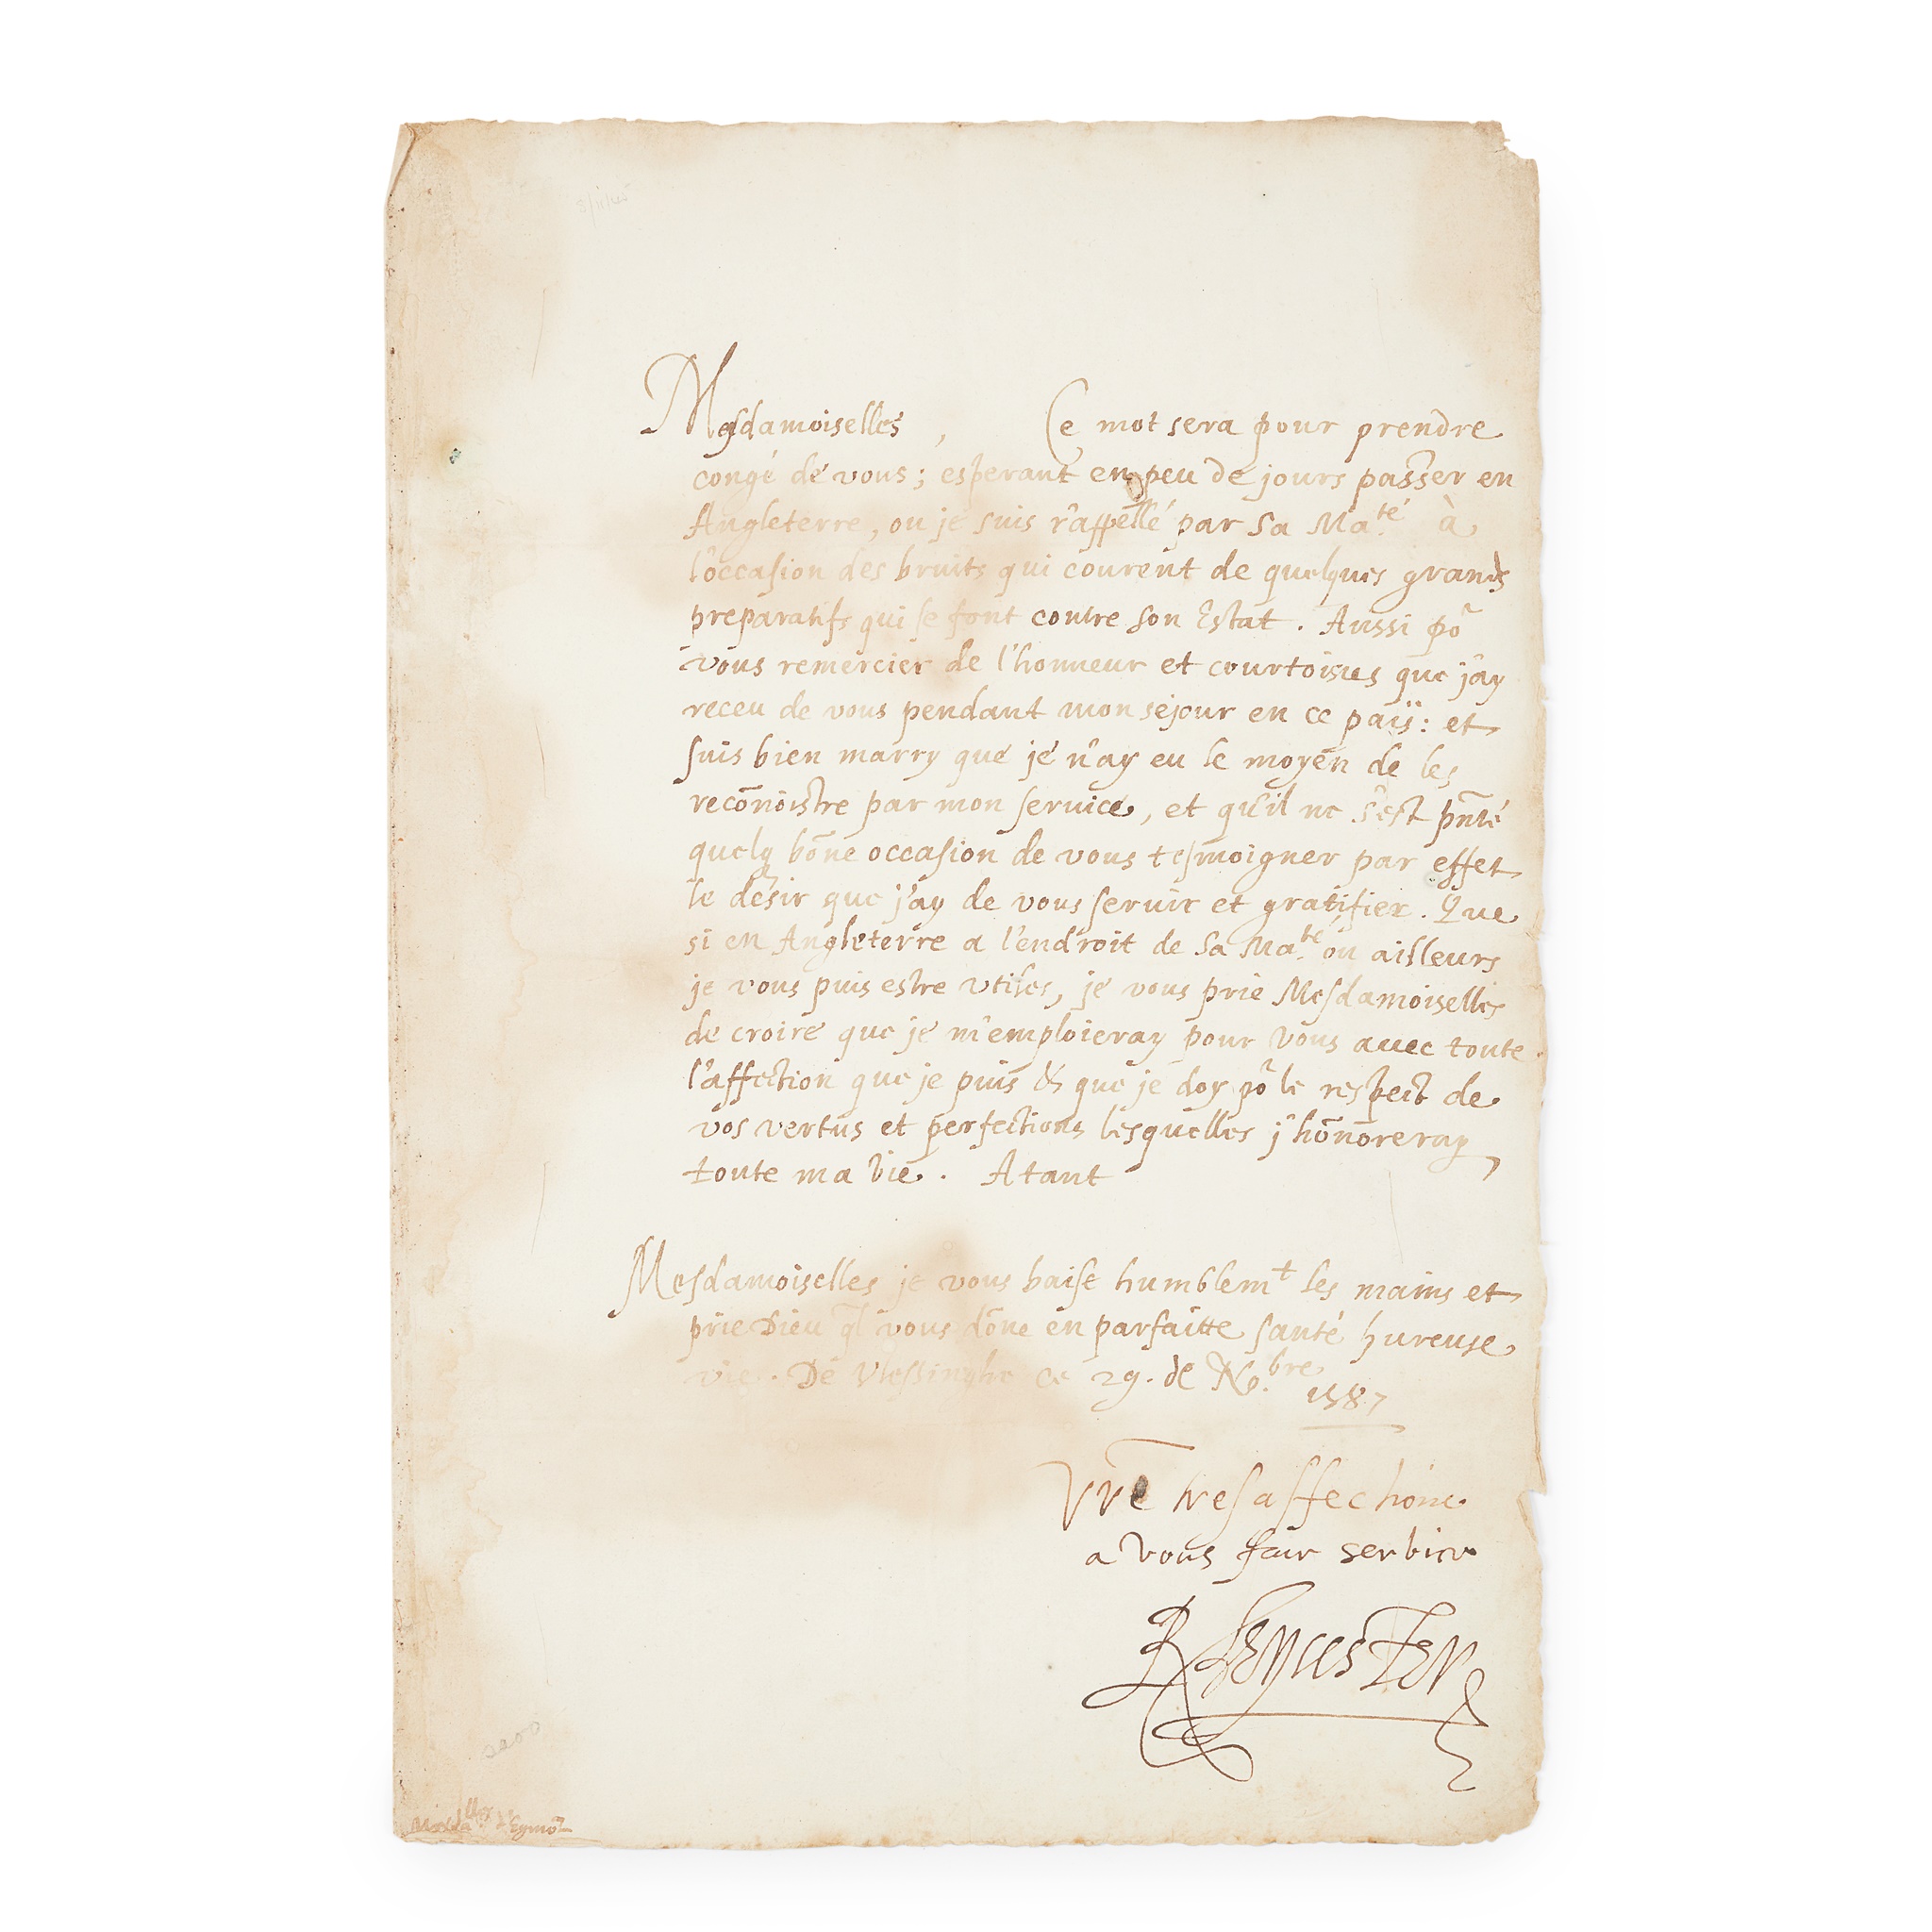 Mesdamoiselles, Ce mot sera pour prendre
congé de vous; esperant en peu de jours passer en
Angleterre, ou je suis r'appellé par sa Ma.té à
l'occasion des bruits qui courent de quelques grands
preparatifs qui se font contre son Estat. Aussi põ
vous remercier de l'honneur et courtoisies que j'ay
receu de vous pendant mon sejour en ce païs: et
suis bien marry que je n'ay eu le moyen de les
recõnoistre par mon seruice, et qu'il ne s'est pñté
quelq bõne occasion de vous tesmoigner par effet
le desir que j'ay de vous seruir et gratifier. Que
si en Angleterre a l'endroit de sa Ma.té ou ailleurs
je vous puis estre vtiles, je vous prie Mesdamoiselles
de croire que je m'emploieray pour vous auec toute
l'affection que je puis & que je doy põ le respect de
vos vertus et perfections lesquelles j'hõnoreray
toute ma vie. Atant
Mesdamoiselles je vous baise humblem.t les mains et
prie Dieu ql̃ vous dõne en parfaitte santé hureuse
vie. De Vlessinghe ce 29. de No.bre 1587
Vr̃e tresaffectione
a vous fair service
R Leycester
Mesda.lles d'Egmõt